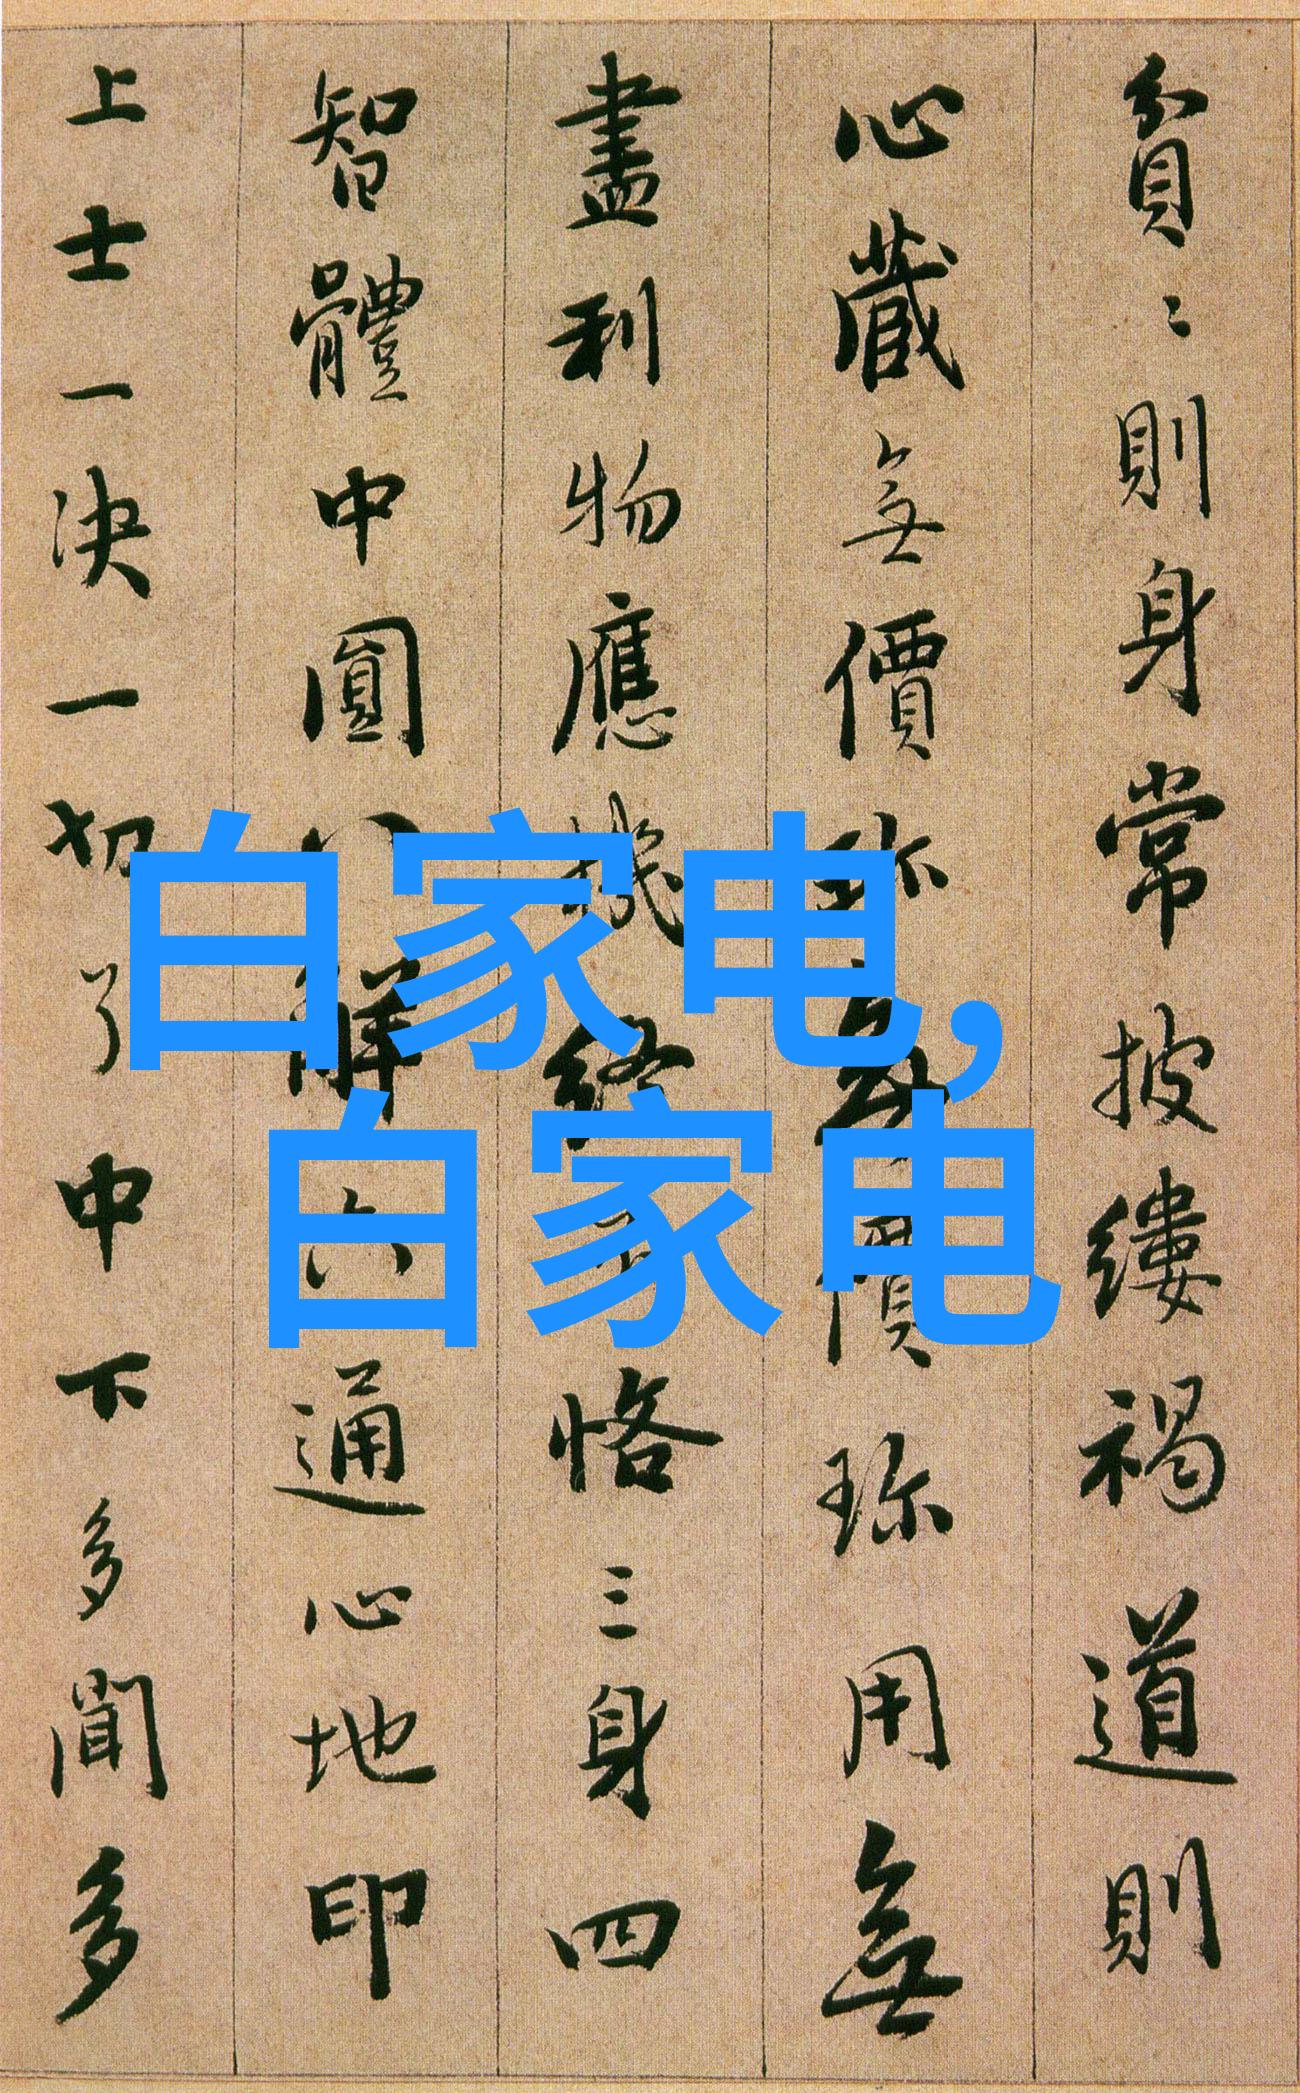 貧〻則身常披縷褐道則
心藏無價珎無價珎用無
盡利物應機終恪三身四
智體中圓八解六通心地印
上士一決一切了中下多聞多
白家电,
白家电